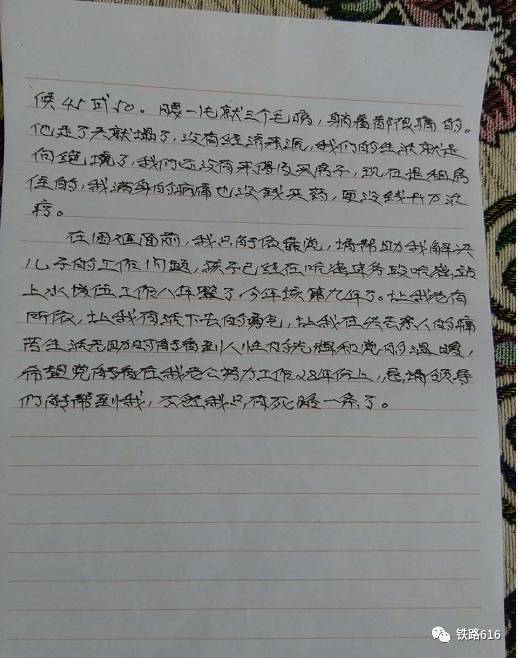 候45或50。腰一毛就三个毛病，躺着都很痛的。
他走了天就塌了，没有经济来源，我们的生活就是
向绝境了，我们还没有来得及买房子，现在是租房
住的，我满身的病痛也没钱买药，更没钱开刀治
疗。
在困难面前，我只能依靠党，请帮助我解决
儿子的工作问题，孩子已经在哈密客务段哈密站
上水岗位工作八年整了，今年该第九年了。让我老有
所依，让我有活下去的勇气，让我在失去亲人的痛
苦生活无助时能看到人性的光辉和党的温暖，
希望党能看在我老公努力工作28年份上，恳请领导
们能帮到我，不然我只有死路一条了。
铁路616